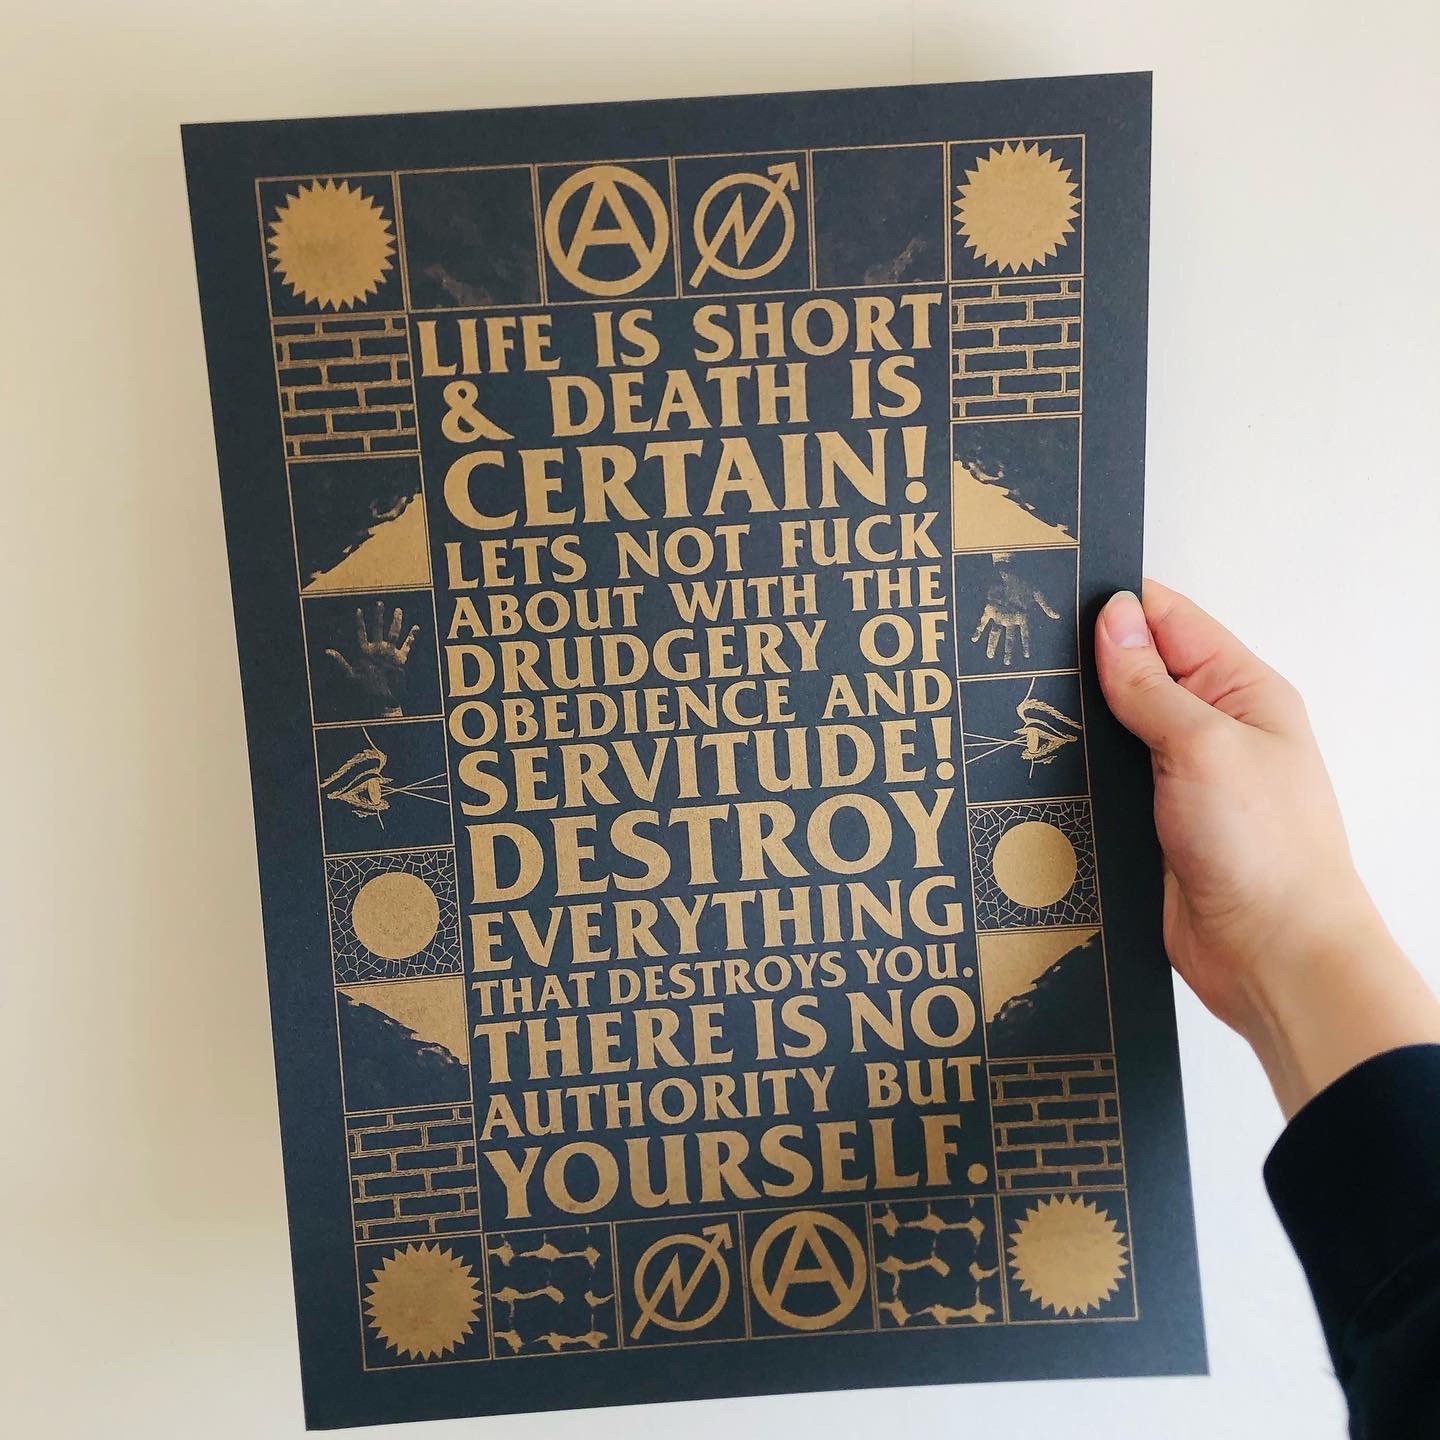 LIFE IS SHORT
& DEATH IS
CERTAIN!
LETS NOT FUCK
ABOUT WITH THE
DRUDGERY OF
OBEDIENCE AND
SERVITUDE!
DESTROY
EVERYTHING
THAT DESTROYS YOU.
THERE IS NO
AUTHORITY BUT
YOURSELF.